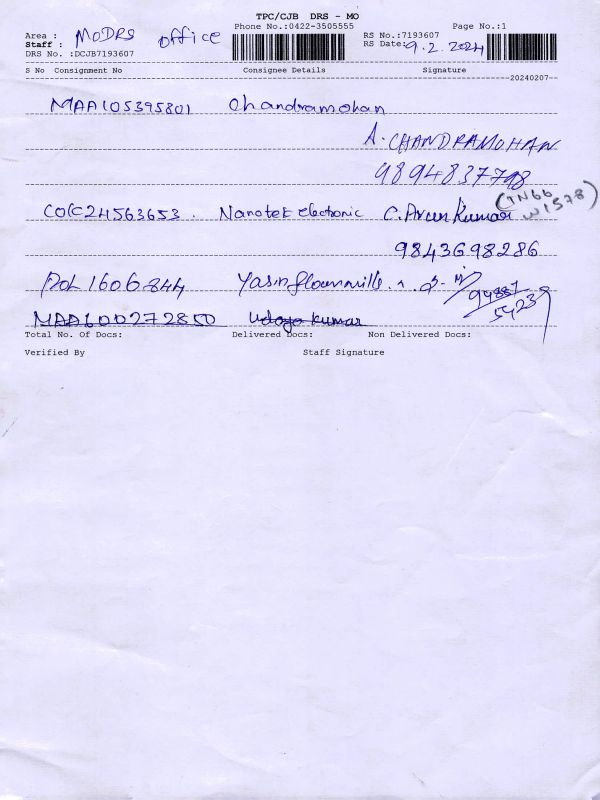 TPC/CJB DRS - MO
Phone No.:0422-3505555 Page No.:1
Area : MODRS office RS No.:7193607
Staff : RS Date: 9.2.2024
DRS No. :DCJB7193607
S No Consignment No Consignee Details Signature
20240207
MAA105395801 Chandramohan
A. CHANDRAMOHAN
9894837798
24563653 Nanotek electronic C. Arun Kumar (TN66 W1578)
9843698286
1606844
94887
54239
MAA600272850 Udaya Kumar
Total No. Of Docs: Delivered Docs: Non Delivered Docs:
Verified By Staff Signature